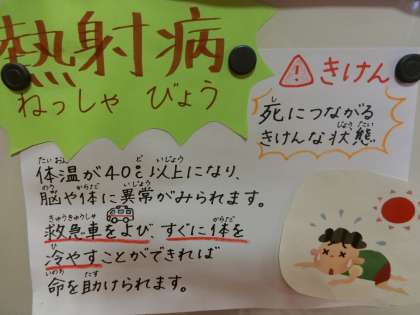 熱射病
ねっしゃ びょう
きけん
死につながる
きけんな状態
体温が40℃以上になり、
脳や体に異常がみられます。
救急車をよび、すぐに体を
冷やすことができれば
命を助けられます。